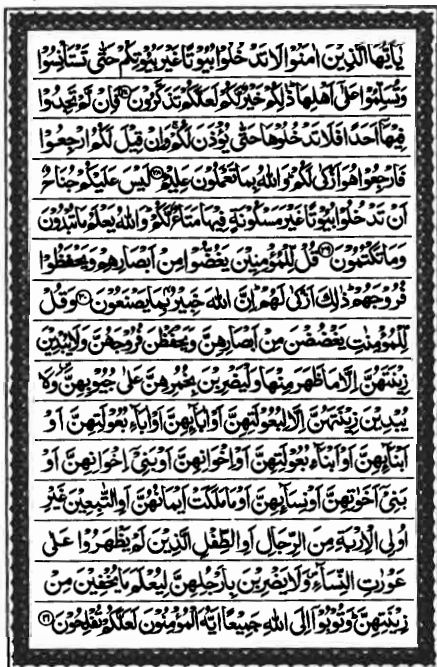 يٰۤاَيُّهَا الَّذِيْنَ اٰمَنُوْا لَا تَدْخُلُوْا بُيُوْتًا غَيْرَ بُيُوْتِكُمْ حَتّٰى تَسْتَاْنِسُوْا
وَتُسَلِّمُوْا عَلٰۤى اَهْلِهَا ذٰلِكُمْ خَيْرٌ لَّكُمْ لَعَلَّكُمْ تَذَكَّرُوْنَ ﴿۲۷﴾ فَاِنْ لَّمْ تَجِدُوْا
فِيْهَاۤ اَحَدًا فَلَا تَدْخُلُوْهَا حَتّٰى يُؤْذَنَ لَكُمْ وَاِنْ قِيْلَ لَكُمُ ارْجِعُوْا
فَارْجِعُوْا هُوَ اَزْكٰى لَكُمْ وَاللّٰهُ بِمَا تَعْمَلُوْنَ عَلِيْمٌ ﴿۲۸﴾ لَيْسَ عَلَيْكُمْ جُنَاحٌ
اَنْ تَدْخُلُوْا بُيُوْتًا غَيْرَ مَسْكُوْنَةٍ فِيْهَا مَتَاعٌ لَّكُمْ وَاللّٰهُ يَعْلَمُ مَا تُبْدُوْنَ
وَمَا تَكْتُمُوْنَ ﴿۲۹﴾ قُلْ لِّلْمُؤْمِنِيْنَ يَغُضُّوْا مِنْ اَبْصَارِهِمْ وَيَحْفَظُوْا
فُرُوْجَهُمْ ذٰلِكَ اَزْكٰى لَهُمْ اِنَّ اللّٰهَ خَبِيْرٌۢ بِمَا يَصْنَعُوْنَ ﴿۳۰﴾ وَقُلْ
لِّلْمُؤْمِنٰتِ يَغْضُضْنَ مِنْ اَبْصَارِهِنَّ وَيَحْفَظْنَ فُرُوْجَهُنَّ وَلَا يُبْدِيْنَ
زِيْنَتَهُنَّ اِلَّا مَا ظَهَرَ مِنْهَا وَلْيَضْرِبْنَ بِخُمُرِهِنَّ عَلٰى جُيُوْبِهِنَّ وَلَا
يُبْدِيْنَ زِيْنَتَهُنَّ اِلَّا لِبُعُوْلَتِهِنَّ اَوْ اٰبَآئِهِنَّ اَوْ اٰبَآءِ بُعُوْلَتِهِنَّ اَوْ
اَبْنَآئِهِنَّ اَوْ اَبْنَآءِ بُعُوْلَتِهِنَّ اَوْ اِخْوَانِهِنَّ اَوْ بَنِيْۤ اِخْوَانِهِنَّ اَوْ
بَنِيْۤ اَخَوٰتِهِنَّ اَوْ نِسَآئِهِنَّ اَوْ مَا مَلَكَتْ اَيْمَانُهُنَّ اَوِ التّٰبِعِيْنَ غَيْرِ
اُولِى الْاِرْبَةِ مِنَ الرِّجَالِ اَوِ الطِّفْلِ الَّذِيْنَ لَمْ يَظْهَرُوْا عَلٰى
عَوْرٰتِ النِّسَآءِ وَلَا يَضْرِبْنَ بِاَرْجُلِهِنَّ لِيُعْلَمَ مَا يُخْفِيْنَ مِنْ
زِيْنَتِهِنَّ وَتُوْبُوْۤا اِلَى اللّٰهِ جَمِيْعًا اَيُّهَ الْمُؤْمِنُوْنَ لَعَلَّكُمْ تُفْلِحُوْنَ ﴿۳۱﴾